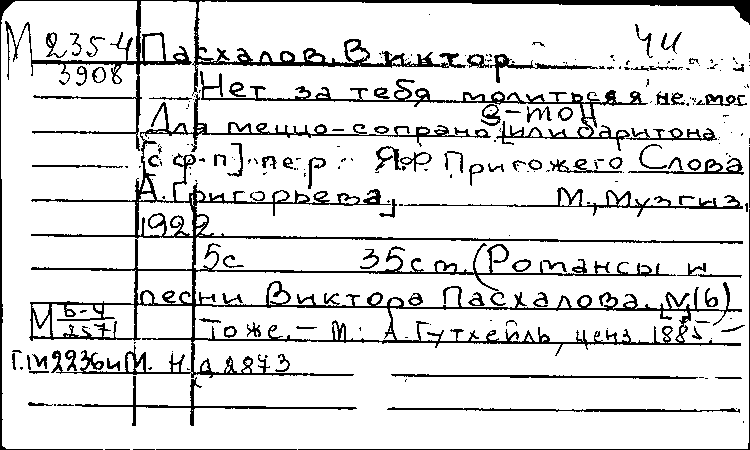 М 235-4 Пасхалов, Виктор ЧИ
3908
Нет за тебя молиться я не мог
g-moll
Для меццо-сопрано [или баритона
[с ф-п] пер. Я.Ф. Пригожего Слова
А. Григорьева] М., Музгиз,
1922.
5с 35ст. (Романсы и
песни Виктора Пасхалова. № (6)
М Б-4 Тоже. – М.: А. Гутхейль, ценз. 1885. –
2571
Г.М 2236 и М. Н. д. 2873